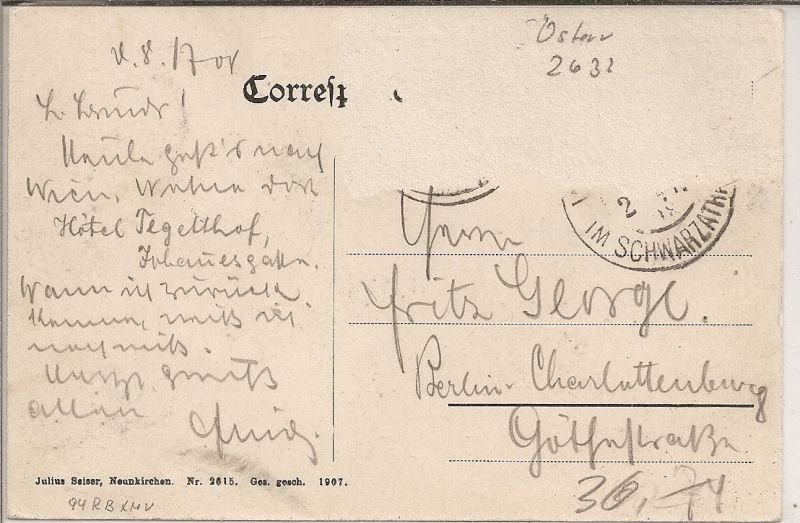 8. 17
Correſp
L. Bruder!
Heute geht's nach
Wien. Wohne dort
Hôtel Tegetthof,
Johannesgasse.
Wann ich zurück
komme, weiß ich
noch nicht.
Herzl. Grüße
allen
Julius Seiser, Neunkirchen. Nr. 2615. Ges. gesch. 1907.
94 RB XMV
Österr
2632
2
IM SCHWARZATH
Herrn
Fritz George.
Berlin-Charlottenburg
Göthestraße